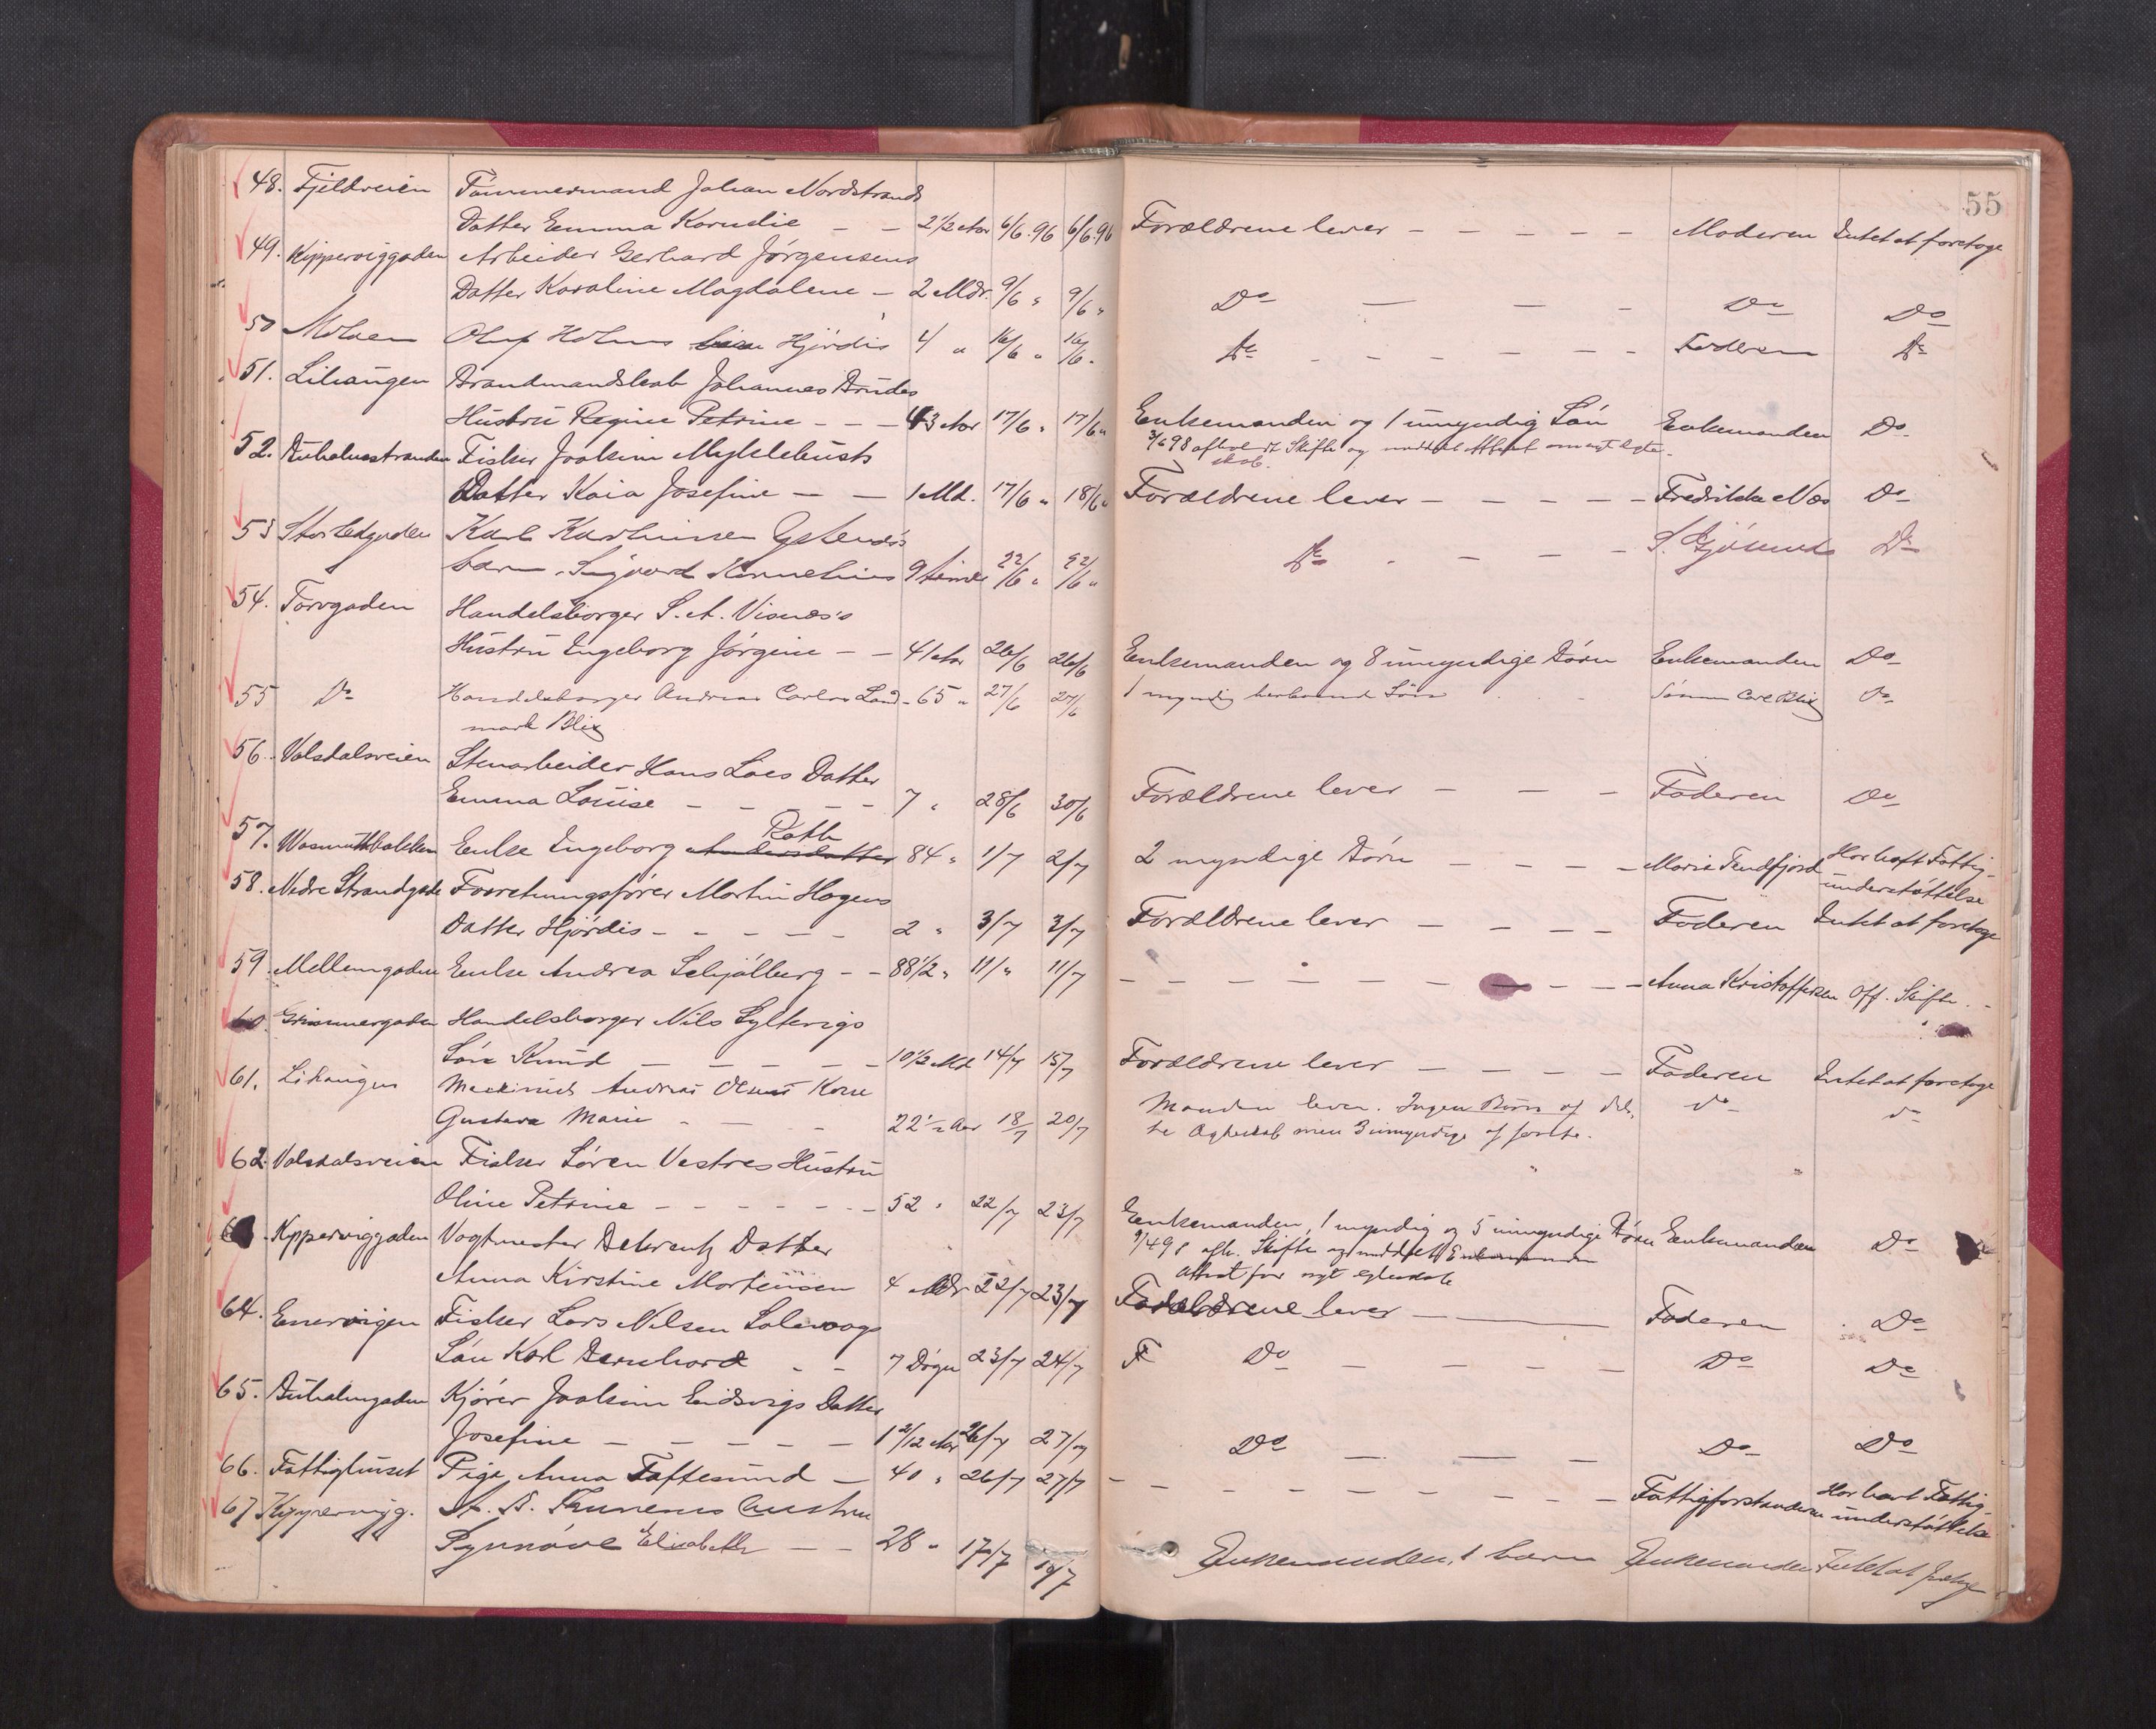 55
48. Fjeldveien Tømmermand Johan Nordstrands
Datter Emma Kornelie — — 2 1/2 Aar 6/6.96 6/6.96 Forældrene lever — — — — — Moderen Intet at foretage
49. Kipperviggaden Arbeider Gerhard Jørgensens
Datter Karoline Magdalene — 2 Mdr. 9/6 „ 9/6 „ Do — — — Do Do
50 Molaen Oluf Holms Hjørdis 4 „ 16/6 „ 16/6 „ Do — — — — — Faderen Do
51. Lihaugen Brandmandskab Johannes Budes
Hustru Regine Petrine — — — 43 Aar 17/6 „ 17/6 „ Enkemanden og 1 umyndig Søn Enkemanden Do
52. Buholmstranden Fisker Joakim Myklebusts
Datter Kaia Josefine — — 1 Md. 17/6 „ 18/6 „ Forældrene lever — — — — Fredrikke Næs Do
53 Storhedgaden Karl
barn Sigvard Kornelius 9 timer 22/6 „ 22/6 „ Do — — — Do
54. Torvgaden Handelsborger S. A. Visnæs's
Hustru Ingeborg Jørgine — — 41 Aar 26/6 26/6 Enkemanden og 8 umyndige Børn Enkemanden Do
55 Do Handelsborger Andreas Carlos Land- 65 „ 27/6 27/6 1 myndig Søn Sønnen Carl Blix Do
mark Blix
56. Volsdalsveien Stenarbeider Hans Løes Datter
Emma Louise — — — — 7 „ 28/6 30/6 Forældrene lever — — — Faderen Do
Rath
57. Wasmuthbakken Enke Ingeborg Andersdatter 84 „ 1/7 2/7 2 myndige Børn — — — Marie Tendfjord Har havt Fattig-
understøttelse
58. Nedre Strandgade Forretningsfører Martin Hagens
Datter Hjørdis — — — — — 2 „ 3/7 3/7 Forældrene lever — — — — Faderen Intet at foretage
59. Mellemgaden Enke Andrea Schjølberg — — 88 1/2 „ 11/„ 11/7 — — — — — — — — — Anna Kristoffersen Off. Skifte.
60. Grimmergaden Handelsborger Nils Syltevigs
Søn Knud — — — — — 10 1/2 Md 14/7 15/7 Forældrene lever — — — — Faderen Intet at foretage
61. Lihaugen Maskinist Andreas Olsens Kone
Gustava Marie — — — 22 1/2 Aar 18/7 20/7 Manden lever. Ingen Børn af det- Do Do
te Ægteskab men 3 umyndige af første.
62. Volsdalsveien Fisker Søren Vestres Hustru
Oline Petrine — — — — — — 52 „ 22/7 23/7 Enkemanden, 1 myndig og 5 umyndige Børn Enkemanden Do
Attest for nyt egteskab
Kipperviggaden Vogtmester Behrentz Datter
Anna Kirstine Mortensen 4 Mdr 22/7 23/7 Forældrene lever — — Faderen Do
64. Enervigen Fisker Lars Nilsen Solevaags
Søn Karl Bernhard — — 7 Døgn 23/7 24/7 F Do — — — — Do Do
65. Buholmgaden Kjører Joakim Eidsvigs Datter
Josefine — — — — — 1 2/12 Aar 26/7 27/7 Do — — — Do Do
66. Fattighuset Pige Anna Toftesund — 40 „ 26/7 27/7 — — — — — — — — — Fattigforstanderen Har havt Fattig-
understøttelse
67 Kippervigg. Hustru
Synnøve Elisabeth — — 28 „ 17/7 19/7 Enkemanden, 1 barn Enkemanden Intet at foretage